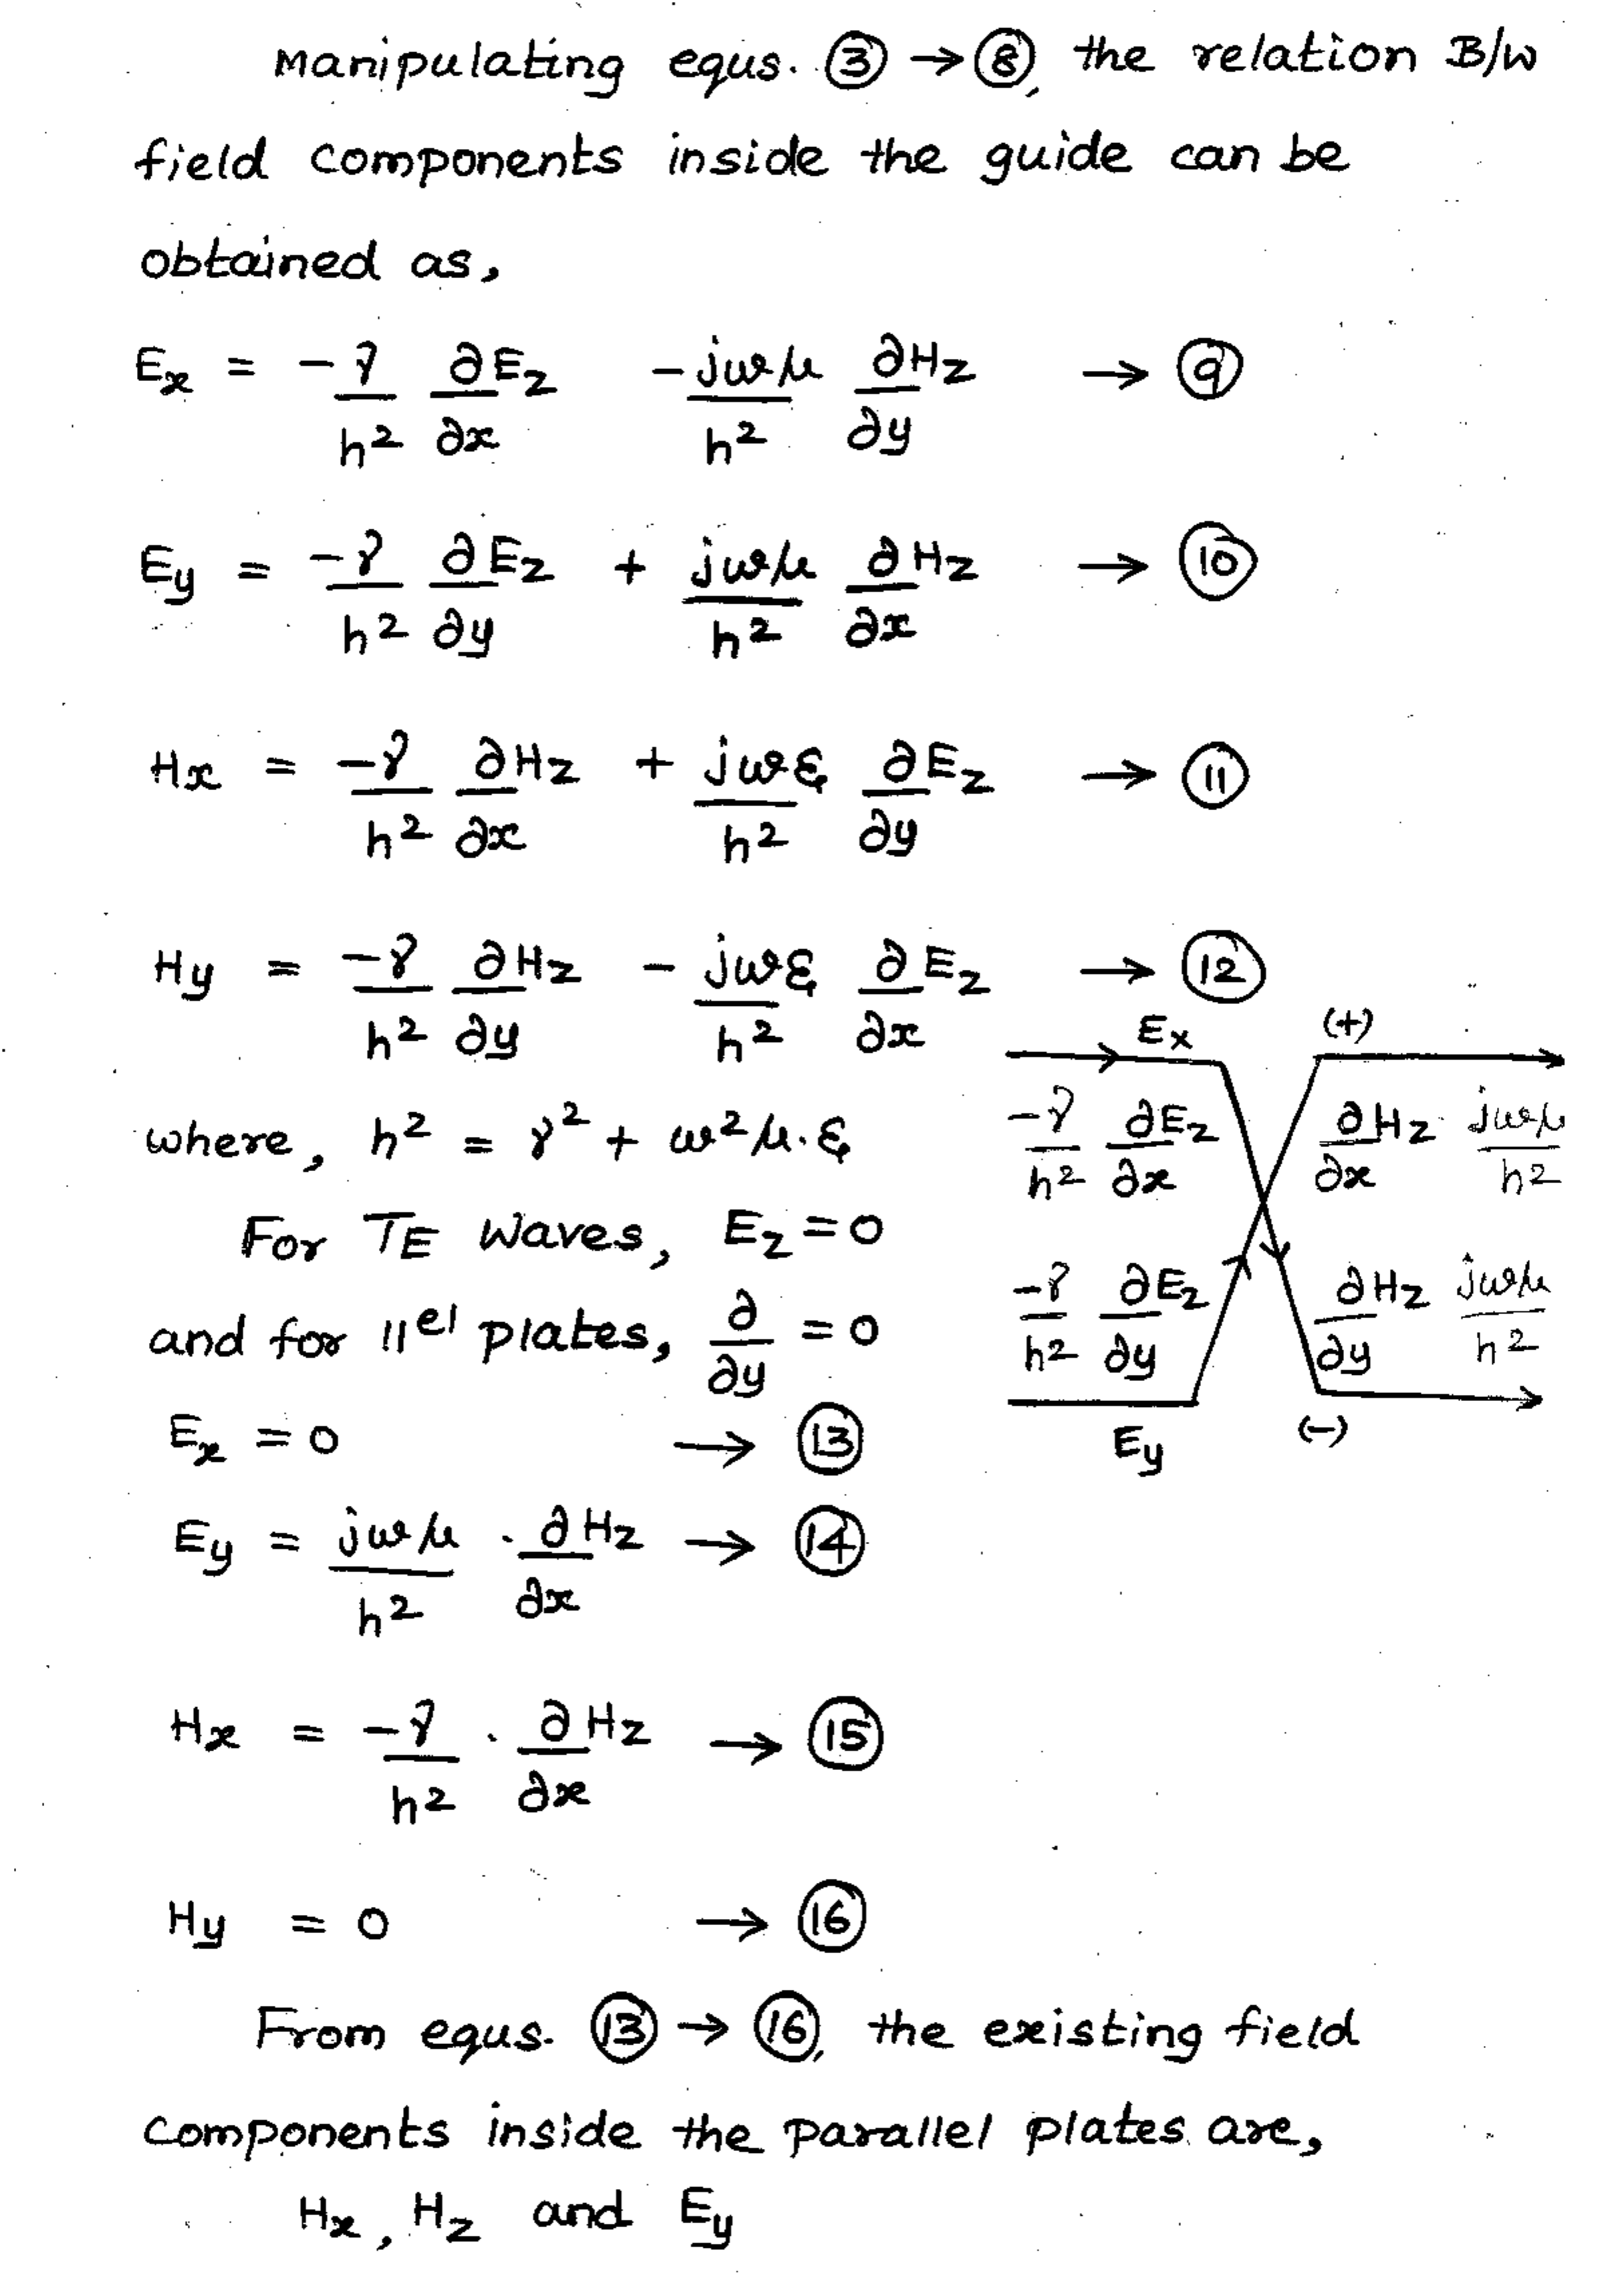 Manipulating equs. ③ → ⑧, the relation B/w
field components inside the guide can be
obtained as,
Ex = -γ/h² ∂Ez/∂x - jωμ/h² ∂Hz/∂y → ⑨
Ey = -γ/h² ∂Ez/∂y + jωμ/h² ∂Hz/∂x → ⑩
Hx = -γ/h² ∂Hz/∂x + jωε/h² ∂Ez/∂y → ⑪
Hy = -γ/h² ∂Hz/∂y - jωε/h² ∂Ez/∂x → ⑫
where, h² = γ² + ω²μ.ε
For TE Waves, Ez = 0
and for ||el plates, ∂/∂y = 0
Ex (+)
-γ/h² ∂Ez/∂x ∂Hz/∂x jωμ/h²
-γ/h² ∂Ez/∂y ∂Hz/∂y jωμ/h²
Ey (-)
Ex = 0 → ⑬
Ey = jωμ/h² . ∂Hz/∂x → ⑭
Hx = -γ/h² . ∂Hz/∂x → ⑮
Hy = 0 → ⑯
From equs. ⑬ → ⑯, the existing field
components inside the parallel plates are,
Hx, Hz and Ey